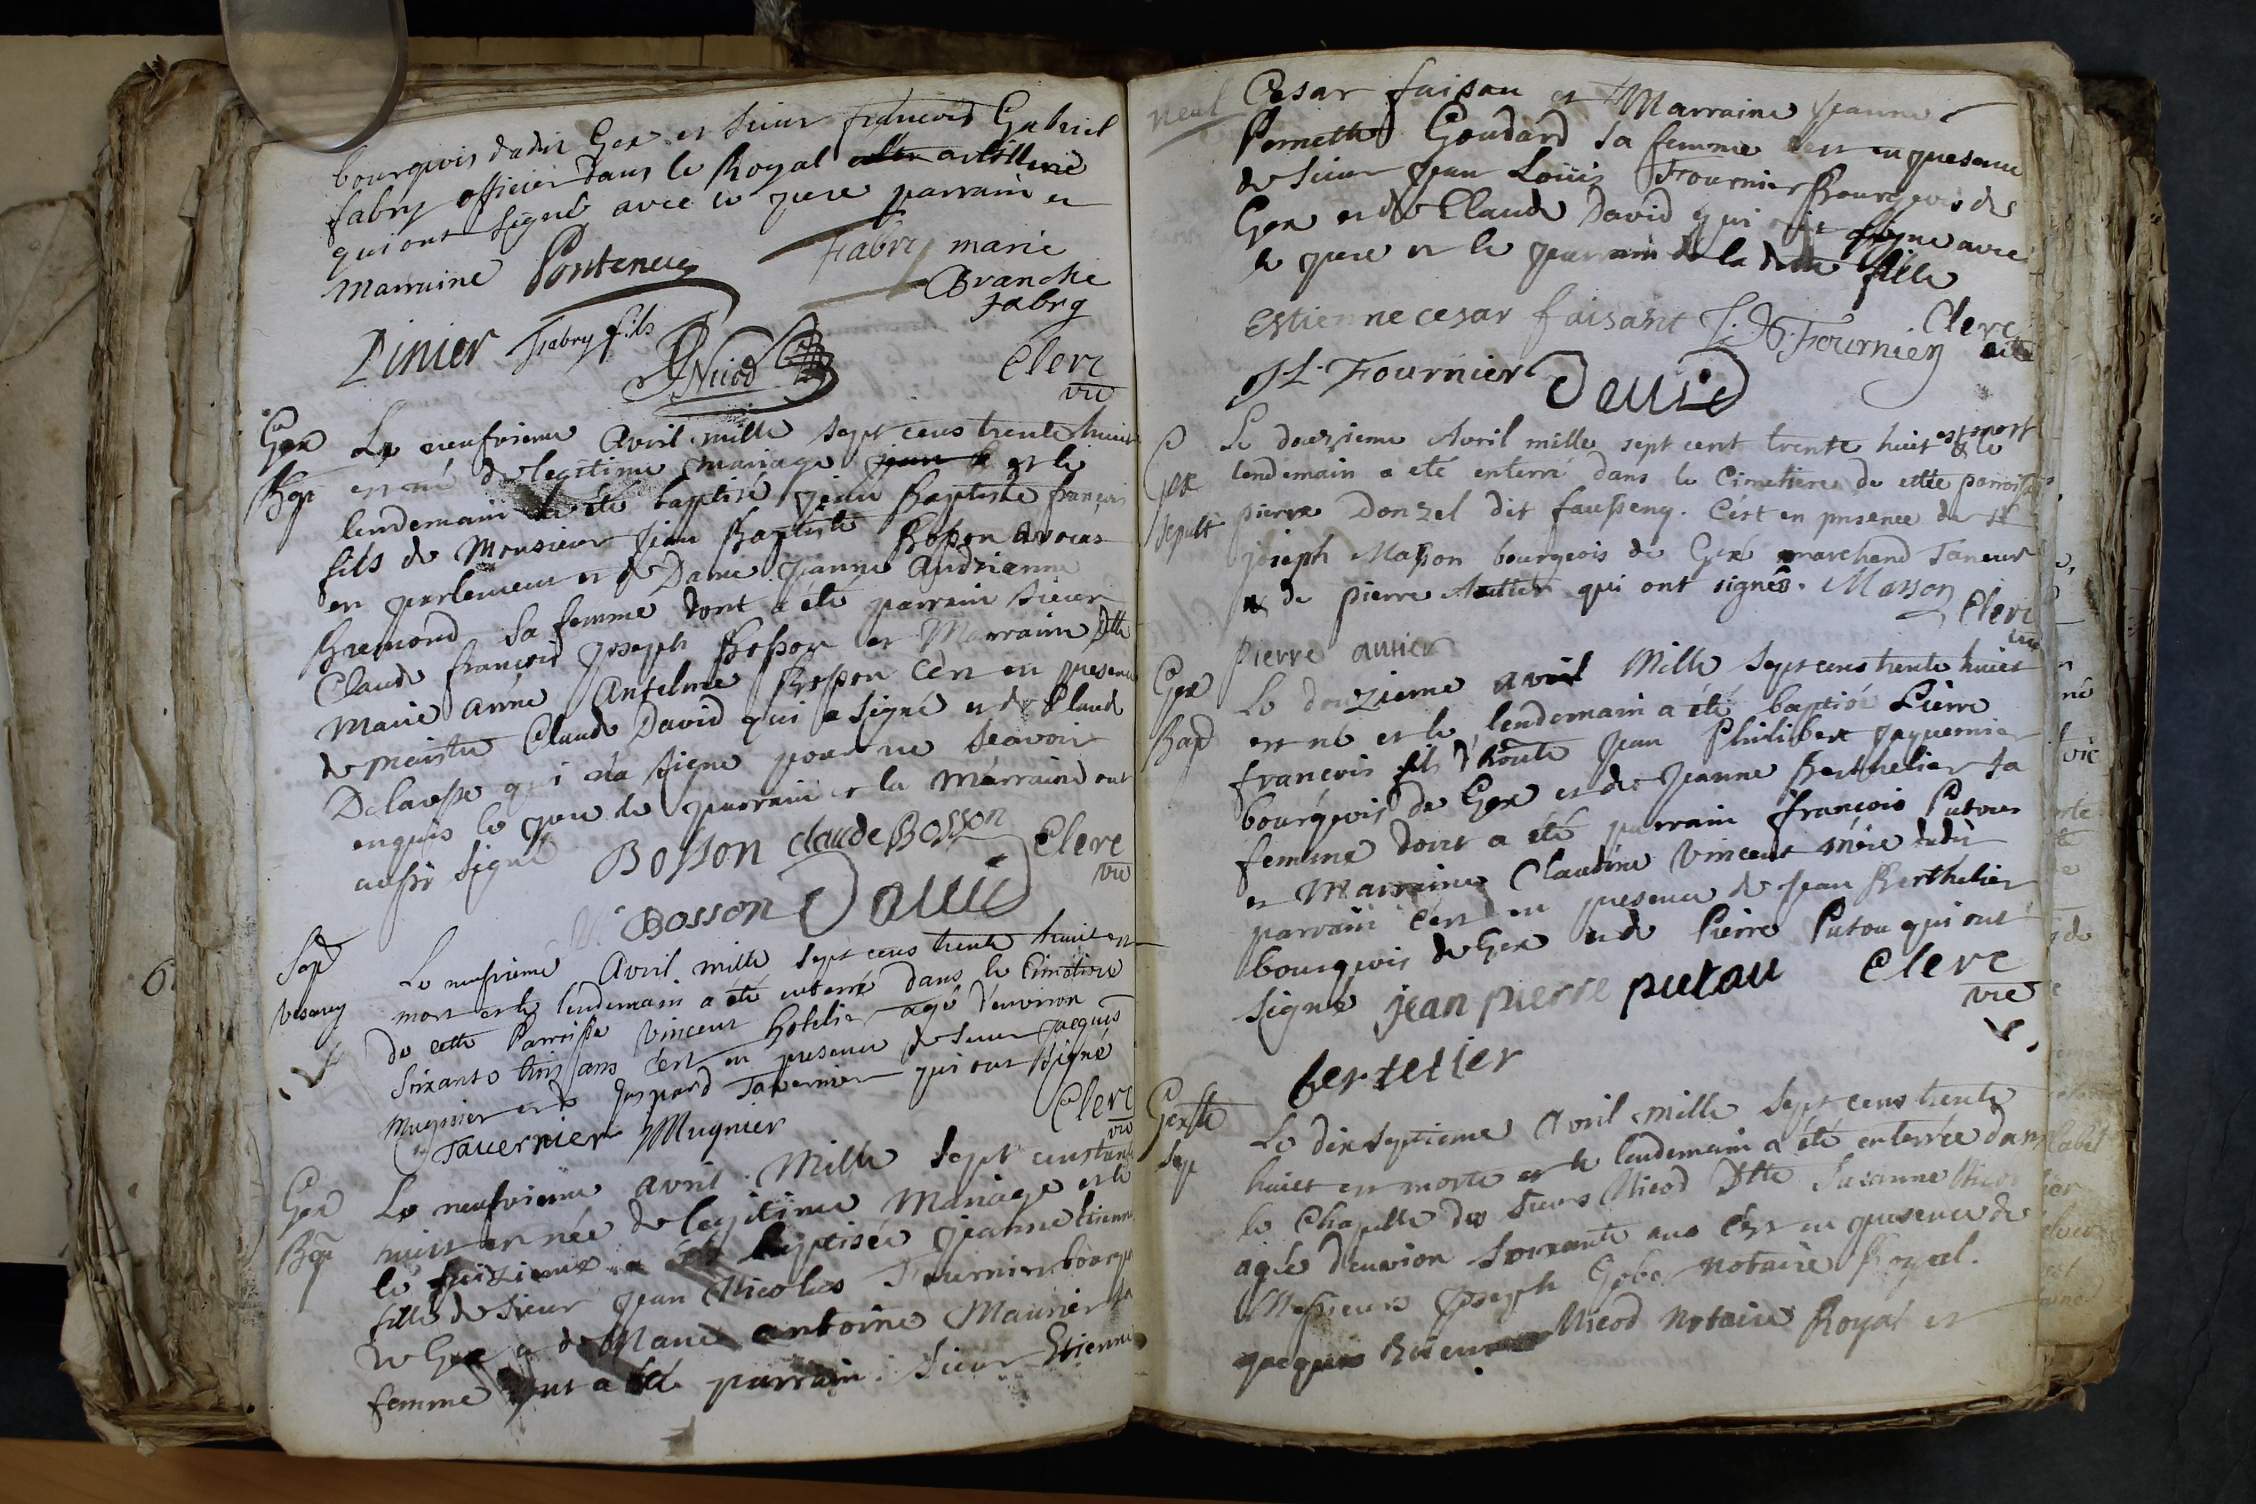 bourgeois dudit Gex et sieur françois Gabriel
fabry officier dans le Royal artillerie
qui ont signé avec le pere parrain et
marraine Pontenay Fabry marie
Branche
fabry
Pinier Fabry fils Nicod Clerc
vic
Gex Le neufvieme avril mille sept cens trente huit
Bap est né de legitime mariage et le
lendemain a été baptisé jean Baptiste françois
fils de Monsieur Jean Baptiste Bosson avocat
en parlement et de Dame jeanne Andrienne
Bremond sa femme dont a été parrain sieur
Claude françois joseph Bosson et Marraine Dlle
Marie anne Anselme Bosson C'est en presence
de maitre Claude David qui a signé et de Claude
Delavesse qui n'a signé pour ne sçavoir
enquis le pere le parrain et la marraine ont
aussy signé Bosson claude Bosson Clerc
vic
Bosson David
Sep Le neufvieme Avril mille sept cens trente huit est
Vesancy mort et le lendemain a été enterré dans le Cimetiere
de cette Parroisse Vincent hotelier agé d'environ
soixante trois ans c'est en presence de sieur jacques
Mugnier et de Gaspard Tavernier qui ont signé
Tavernier Mugnier Clerc
vic
Gex Le neufvieme avril Mille sept cens trente
Bap huit est née de legitime Mariage et le
le a été baptisée jeanne Etienne
fille de sieur jean Nicolas Fournier bourgeois
de Gex et de Marie antoine Maunier sa
femme dont a été parrain sieur Etienne
neul Cesar faisan et Marraine jeanne
Pernette Goudard sa femme c'est en presence
de sieur jean Loüis Fournier Bourgeois de
Gex et de Claude David qui ont signé avec
le pere et le parrain de la dite fille
Estienne cesar faisant J. N. Fournier Clerc
J L Fournier David
Le douzieme Avril mille sept cent trente huit est mort et le
Gex lendemain a eté enterré dans le Cimetiere de cette parroisse
sepult pierre Donzel dit fausseny. C'est en presence de Sr
joseph Masson bourgeois de Gex marchend Taneur
& de pierre Autier qui ont signés. Masson Clerc
vic
pierre autier
Gex Le douzieme avril Mille sept cens trente huit
Bap est né et le lendemain a été baptisé Pierre
françois fils d'honte jean Philibert jaquemier
bourgeois de Gex et de jeanne Berthelier sa
femme dont a été parrain françois Putoux
et Marraine Claudine Vincent mére dudit
parrain c'est en presence de jean Berthelier
bourgeois de Gex et de Pierre Putou qui ont
signé jean pierre putau Clerc
vic
bertelier
Gex Le dixseptieme avril mille sept cens trente
Sep huit est morte et le lendemain a été enterrée dans
la Chapelle des sieurs Nicod Dlle Susanne Nicod
agée d'environ soixante ans c'est en presence de
Messieurs joseph Gobe notaire Royal.
jacques Nicod Notaire Royal et